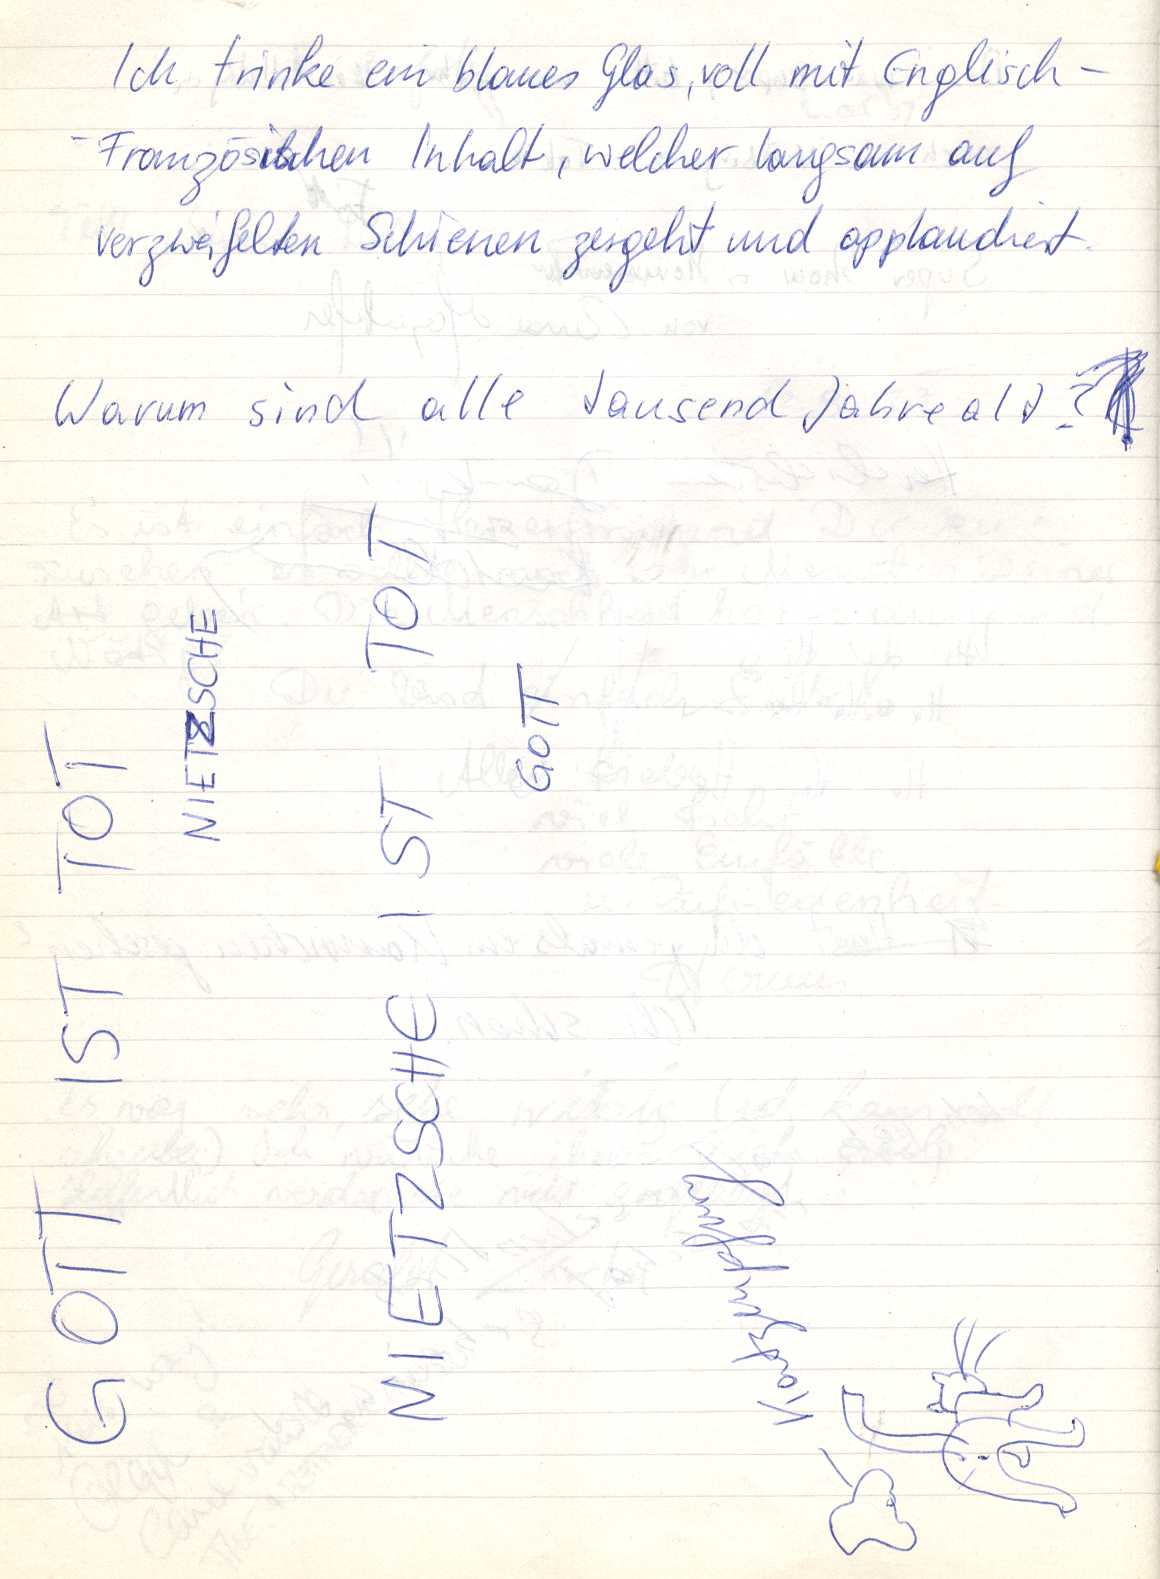 Ich trinke ein blaues Glas, voll mit Englisch -
- Französischen Inhalt, welcher langsam auf
verzweifelten Schienen zergeht und applaudiert.
Warum sind alle tausend Jahre alt?
GOTT IST TOT
NIETZSCHE
NIETZSCHE IST TOT
GOTT